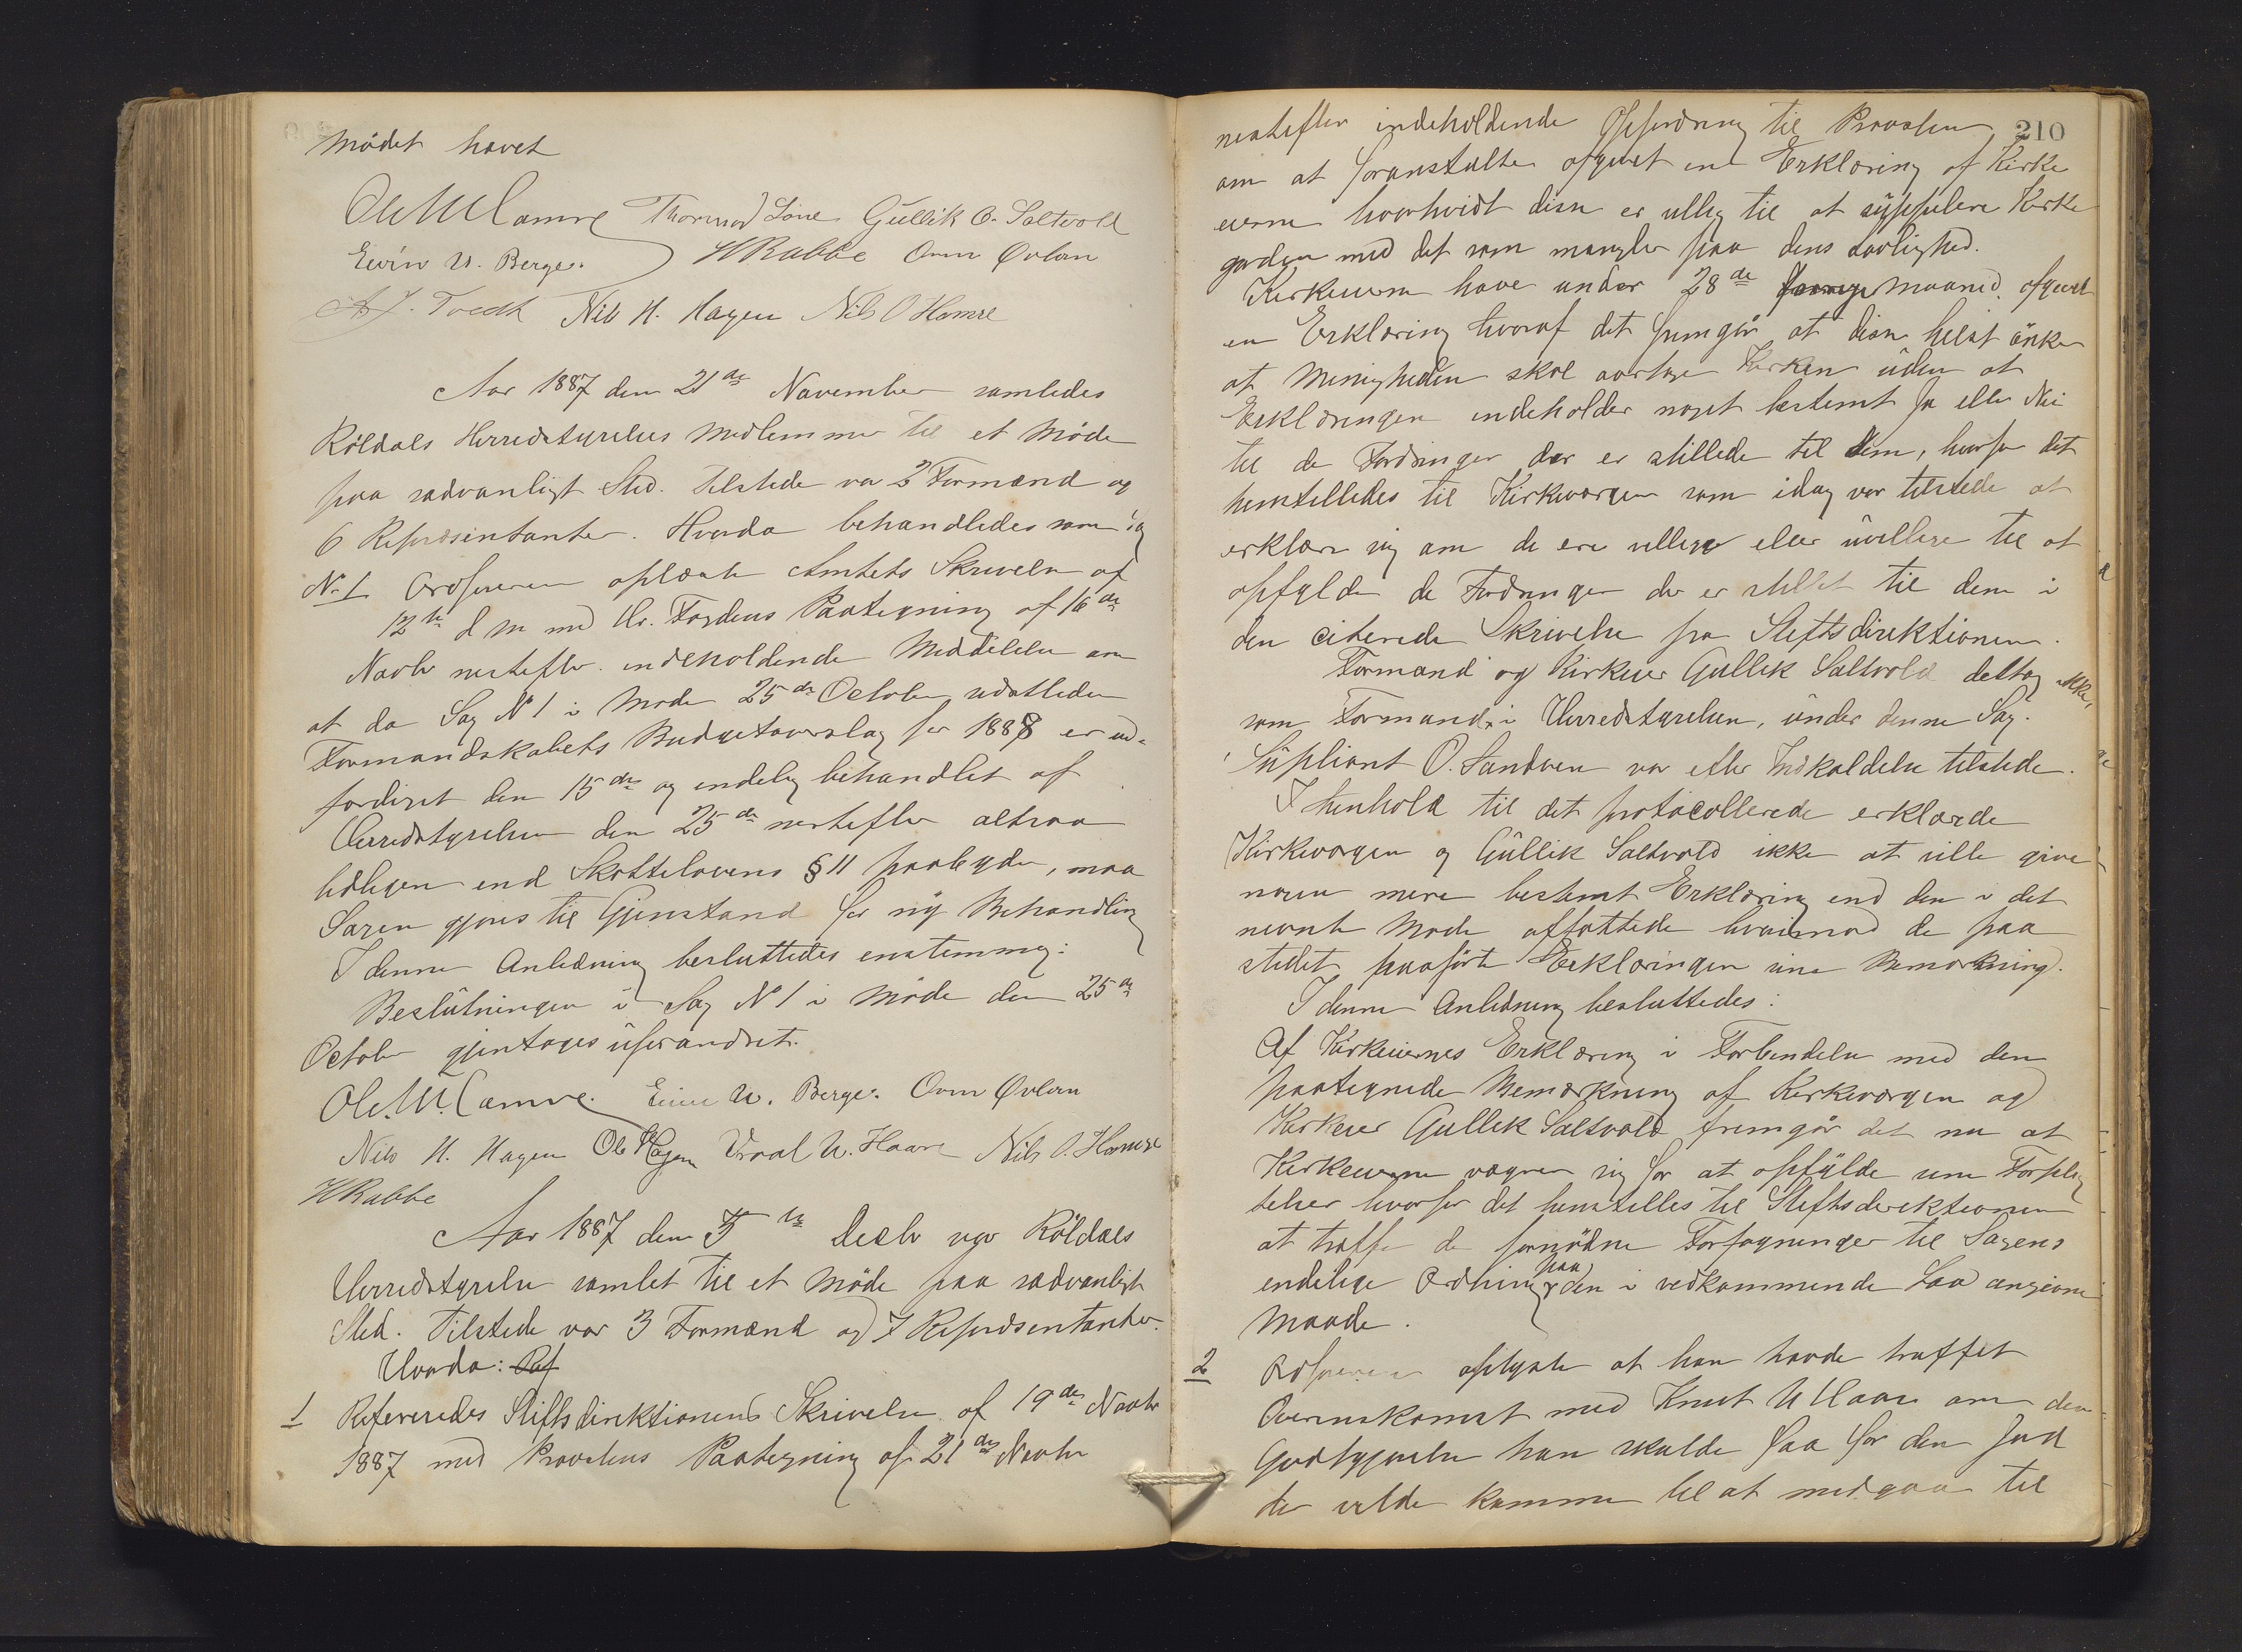 Mödet hævet
Ole M Hamre Thormod Löne Gullik O. Saltvold
Eivin U. Berge. H Rabbe Orm Øvlern
A J. Tvedt Nils H. Hagen Nils O Hamre
Aar 1887 den 21de November samledes
Röldals Herredstyrelses Medlemmer til et Möde
paa sædvanligt Sted. Tilstede var 2 Formænd og
6 Repræsentanter. Hvorda behandledes som Sag
No 1 Ordføreren oplæste Amtets Skrivelse af
12te d M med Hr. Fogdens Paategning af 16de
Novbr nestefter indeholdende Meddelelse om
at da Sag No 1 i Möde 25de October, udstleder
Formandskabets Budgetoverslag for 1888 er ud-
færdiget den 15de og endelig behandlet af
Herredstyrelsen den 25de nestefter altsaa
tidligere end Skattelovens § 11 paabyder, maa
Sagen gjøres til Gjenstand for ny Behandling
I denne Anledning besluttedes enstemmig:
Beslutningen i Sag No 1 i Möde den 25de
October gjentages uforandret.
Ole M. Hamre. Eivin U. Berge. Orm Øvlern
Nils H. Hagen Ole Hagen Vraal U. Haare Nils O. Hamre
H Rabbe
Aar 1887 den 5te Decbr var Röldals
Herredstyrelse samlet til et Möde paa sædvanligt
Sted. Tilstede var 3 Formænd og 7 Repræsentanter.
Hvorda: Ref
1 Refereredes Stiftsdirektionens Skrivelse af 19de Novbr
1887 med Provstens Paategning af 21de Novbr
210
nestefter indeholdende Opfordring til Provsten
om at foranstalte afgivet en Erklæring af Kirke
eierne hvorhvidt disse er villig til at supplere Kirke
gaarden med det som mangler paa dens Lovlighed.
Kirkeeierne have under 28de Maaned. afgivet
en Erklæring hvoraf det fremgår at disse helst önsker
at Menigheden skal overtage Kirken uden at
Erklæringen indeholder noget bestemt Ja eller Nei
til de Fordringer der er stillede til dem, hvorfor det
henstilledes til Kirkeværgen som idag var tilstede at
erklære sig om de ere villige eller uvillige til at
opfylde de Fordringer der er stillet til dem i
den citerede Skrivelse fra Stiftsdirektionen.
Formand og Kirkeeier Gullik Saltvold deltog ikke,
som Formand i Herredstyrelsen, under denne Sag.
Supliant O. Sandven var efter Indkaldelse tilstede.
I henhold til det protocollerede erklærede
Kirkeværgen og Gullik Saltvold ikke at ville give
nogen mere bestemt Erklæring end den i det
nævnte Möde affattede hvorimod de paa
stedet paaførte Erklæringen sine Bemærkning.
I denne Anledning besluttedes:
Af Kirkeeiernes Erklæring i Forbindelse med den
paategnede Bemærkning af Kirkeværgen og
Kirkeeier Gullik Saltvold fremgår det nu at
Kirkeeierne vægrer sig for at opfylde sine Forplig
telser hvorfor det henstilles til Stiftsdirektionen
at træffe de fornødne Forføyninger til Sagens
endelige Ordning paa den i vedkommende Lov angivne
Maade.
2 Ordføreren oplyste at han havde truffet
Overenskomst med Knut U Haare om den
Godtgjørelse han skulde faa for den Jord
der vilde komme til at medgaa til